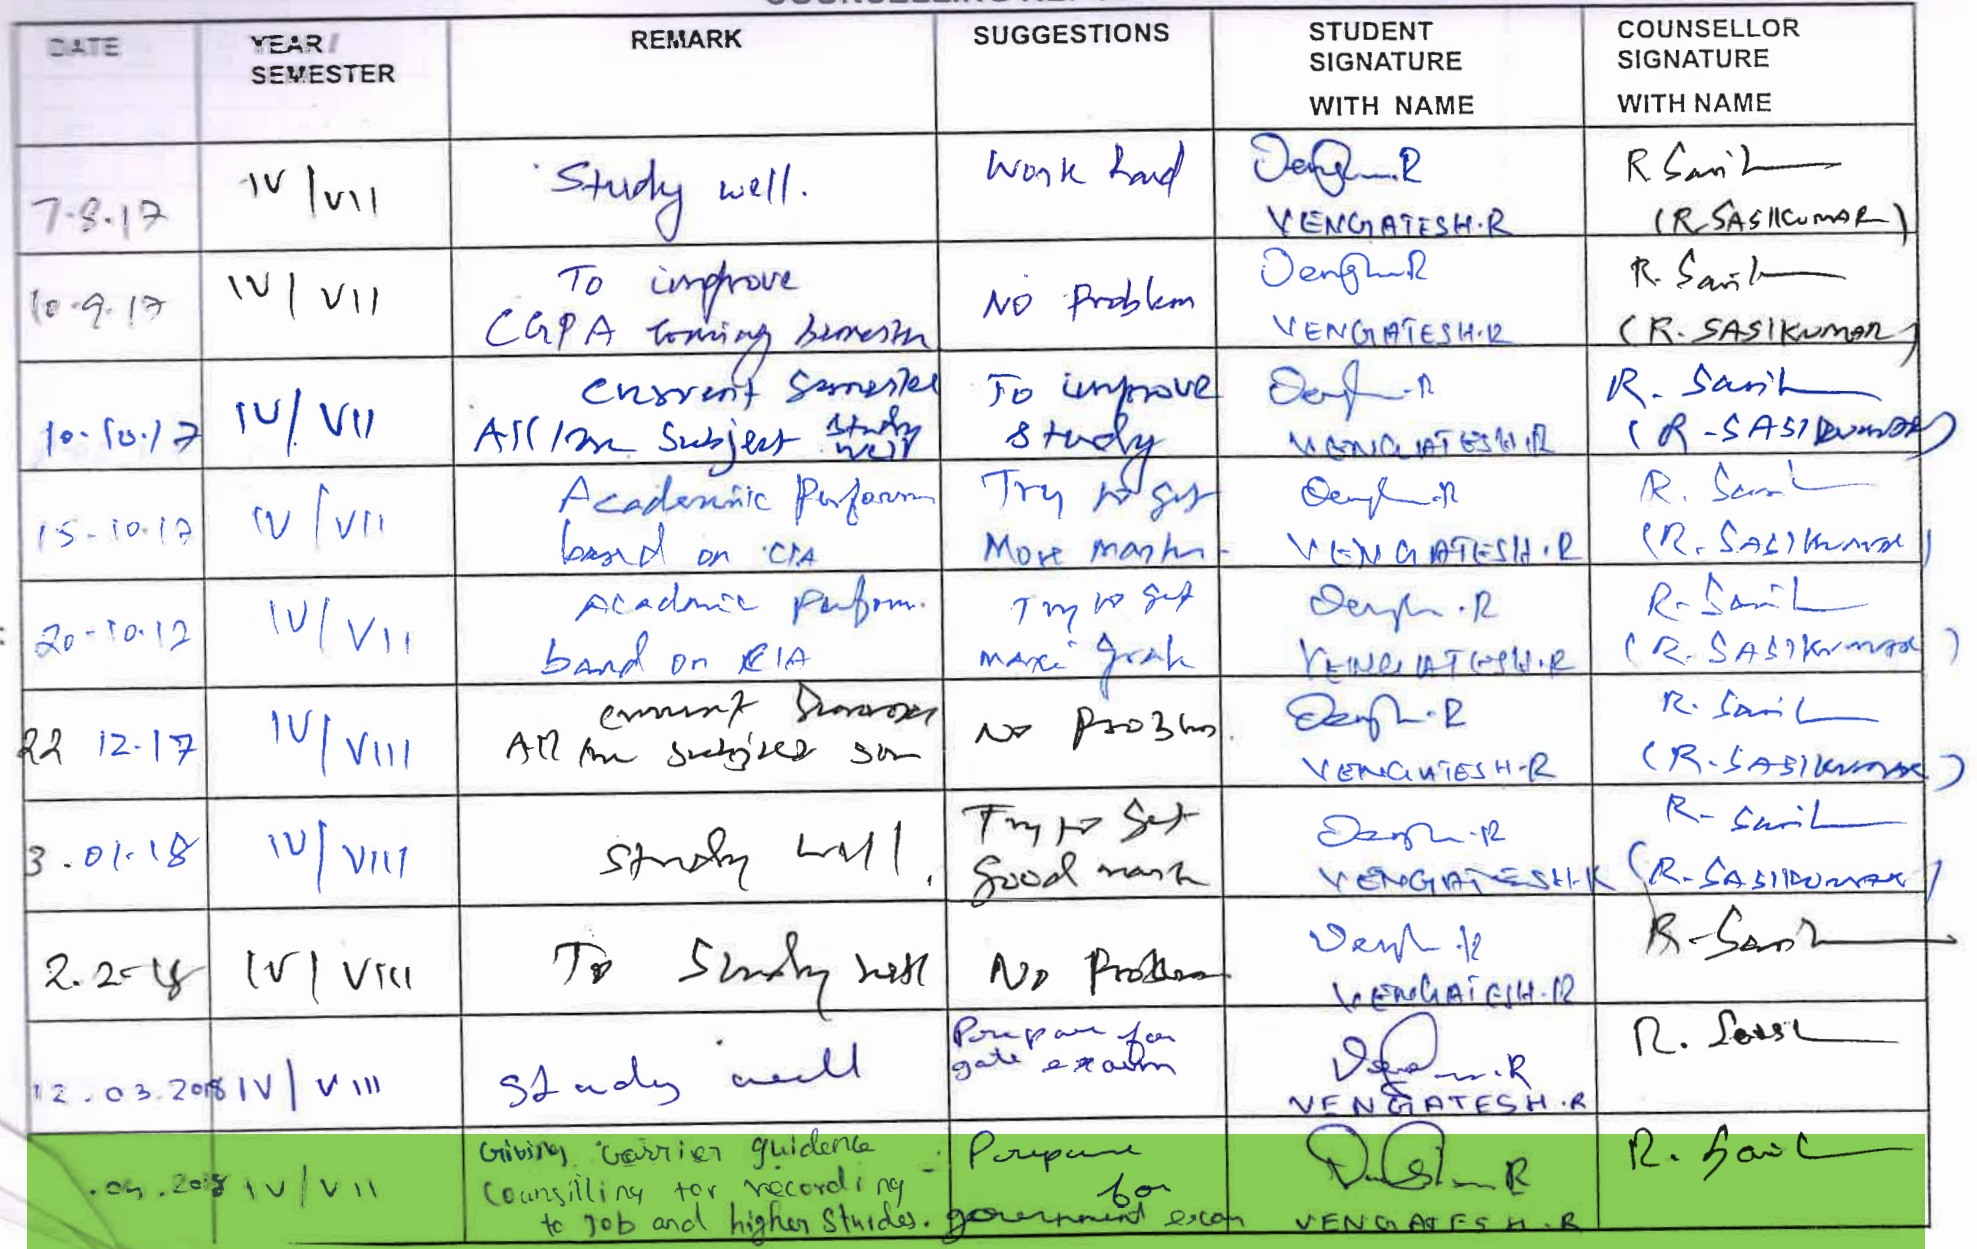 DATE
YEAR/
SEMESTER
REMARK
SUGGESTIONS
STUDENT
SIGNATURE
WITH NAME
COUNSELLOR
SIGNATURE
WITH NAME
7.8.17
IV/VII
Study well.
Work hard
VENGATESH.R
(R.SASIKUMAR)
10.9.17
IV/VII
To improve
CGPA coming semester
NO problem
VENGATESH.R
(R.SASIKUMAR)
10.10.17
IV/VII
Current Semester
All the Subject study
well
To improve
study
VENGATESH.R
(R-SASIKUMAR)
15-10.17
IV/VII
Academic Perform
based on CIA
Try to get
More marks
VENGATESH.R
(R.SASIKUMAR)
20-10.17
IV/VII
Academic perform.
based on CIA
Try to get
VENGATESH.R
(R.SASIKUMAR)
22 12-17
IV/VIII
current Semester
All the subject
No Problem.
VENGATESH.R
(R.SASIKUMAR)
3.01.18
IV/VIII
study well.
Try to get
good mark
VENGATESH.R
(R.SASIKUMAR)
2.2-18
IV/VIII
To Study well
No Problem
VENGATESH.R
12.03.2018
IV/VIII
Study well
Prepare for
gate exam
VENGATESH.R
.04.2018
IV/VII
Giving carrier guidence
Counsilling for recording
to Job and higher Sturdes.
Prepare
for
government exam
VENGATESH.R